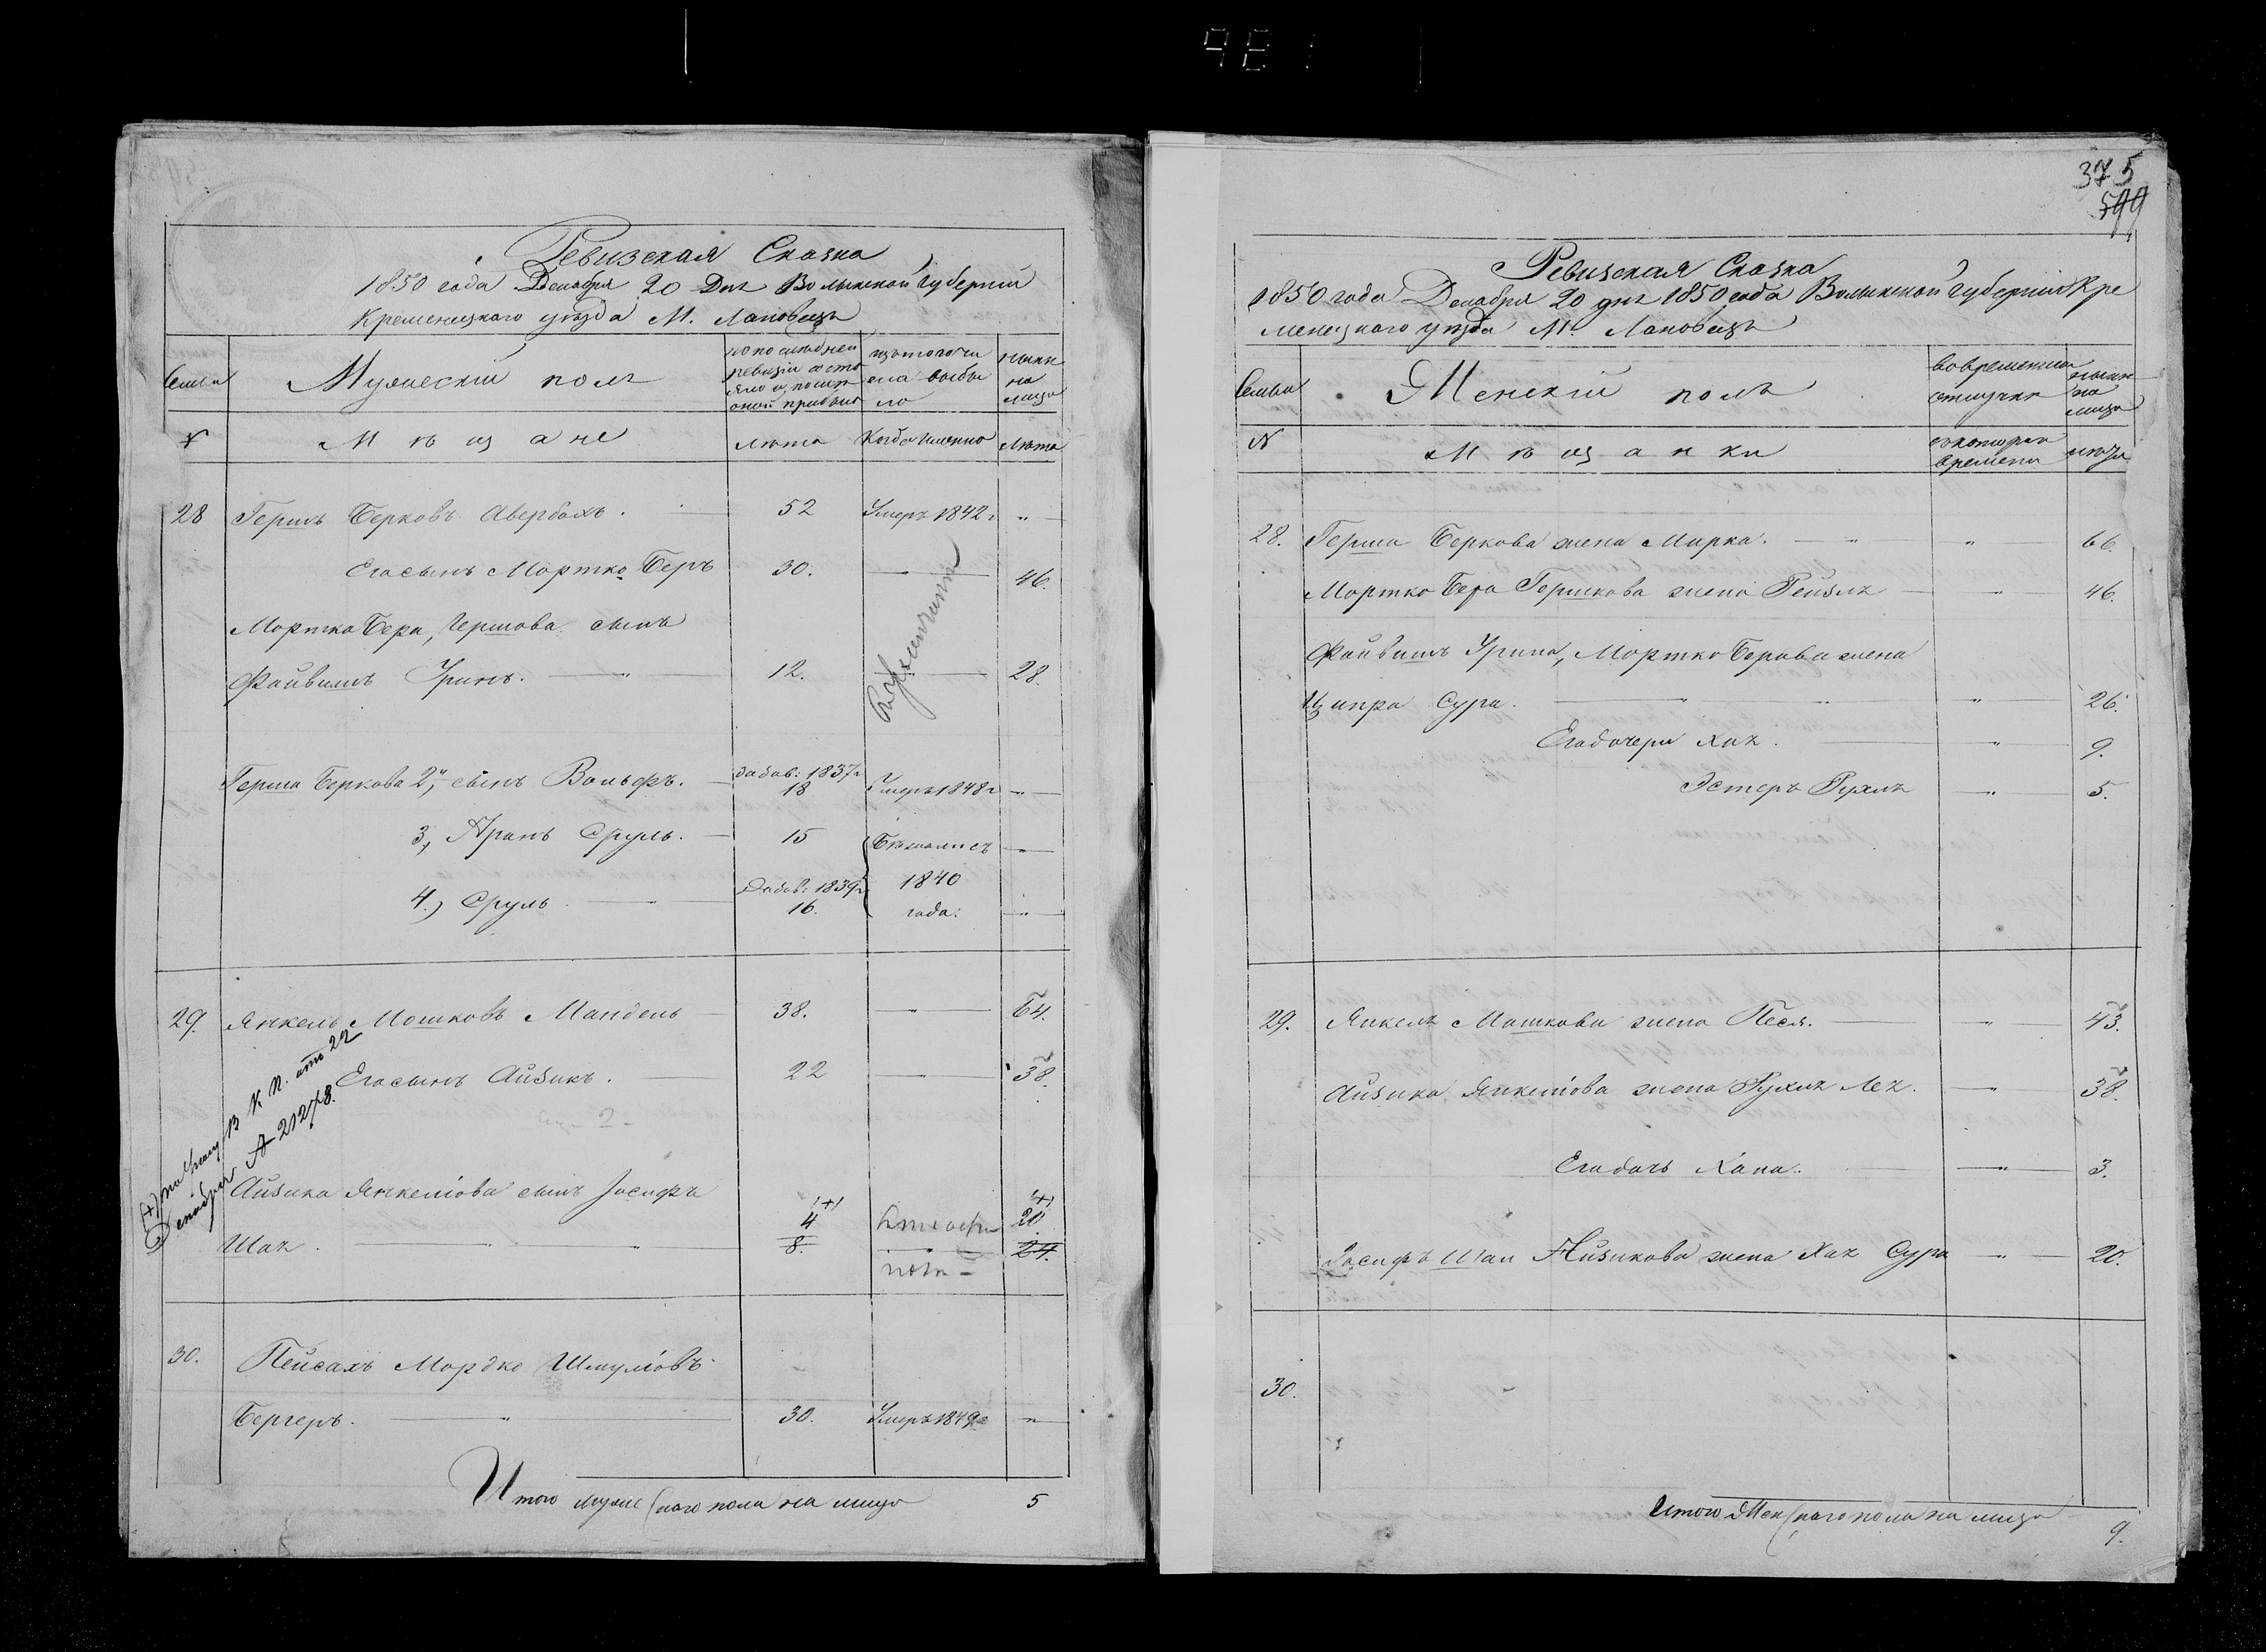 Ревизская Сказка
1850 года Декабря 20 Дня Волынской Губернии
Кременецкаго уезда М. Лановецъ
Семьи
Мужескій полъ
по последней
ревизіи состо
яло и после
оной прибыло
изъ того чи
сла выбы
ло
ныне
на
лицо
№
Мѣщане
лѣта
Когда именно
Лѣта
28 Гершъ Берковъ Авербахъ. 52 Умеръ 1842 г „
Его сынъ Мортко Беръ 30. „ 46.
Мортка Бера, Гершова сынъ
Файвишъ Уринъ. „ 12. „ 28.
Герша Беркова 2й, сынъ Вольфъ. добав: 1837 г
18 Умеръ 1848 г „
3, Аранъ Сруль. 15 Бежались „
4, Сруль. добав: 1839 г
16. 1840
года. „
29. Янкель Мошковъ Мандель 38. „ 64.
Его сынъ Айзикъ. 22 „ 38.
(+) по Указу В. К. П. отъ 22
Декабря № 21278.
Айзика Янкелiова сынъ Іосифъ
Шая. „ „
(+)
4
8.
(+)
20
24.
30. Пейсахъ Мордко Шмулiовъ
Бергеръ. „ 30. Умеръ 1849 г „
Итого мужескаго пола на лицо 5
375
599
Ревизская Сказка
1850 года Декабря 20 дня 1850 года Волынской Губерніи Кре
менецкаго уезда М. Лановецъ
Семьи
Женскій полъ
во временной
отлучки
ныне
на
лицо
№
Мѣщанки
съ котораго
времени
лета
28. Герша Беркова жена Мирка. „ „ 66.
Мортко Бера Гершкова жена Рейзля „ 46.
Файвишъ Урина, Мортко Берова жена
Ципра Сура. „ „ „ 26.
Его дочери Хая. „ 9.
Эстеръ Рухля „ 5.
29. Янкеля Мошкова жена Песя. „ 43.
Айзика Янкелiова жена Рухля Лея. „ 38.
Его дочь Хана. „ 3.
Іосифъ Шаи Айзикова жена Хая Сура „ 20.
30.
Итого Женскаго пола на лицо 9.